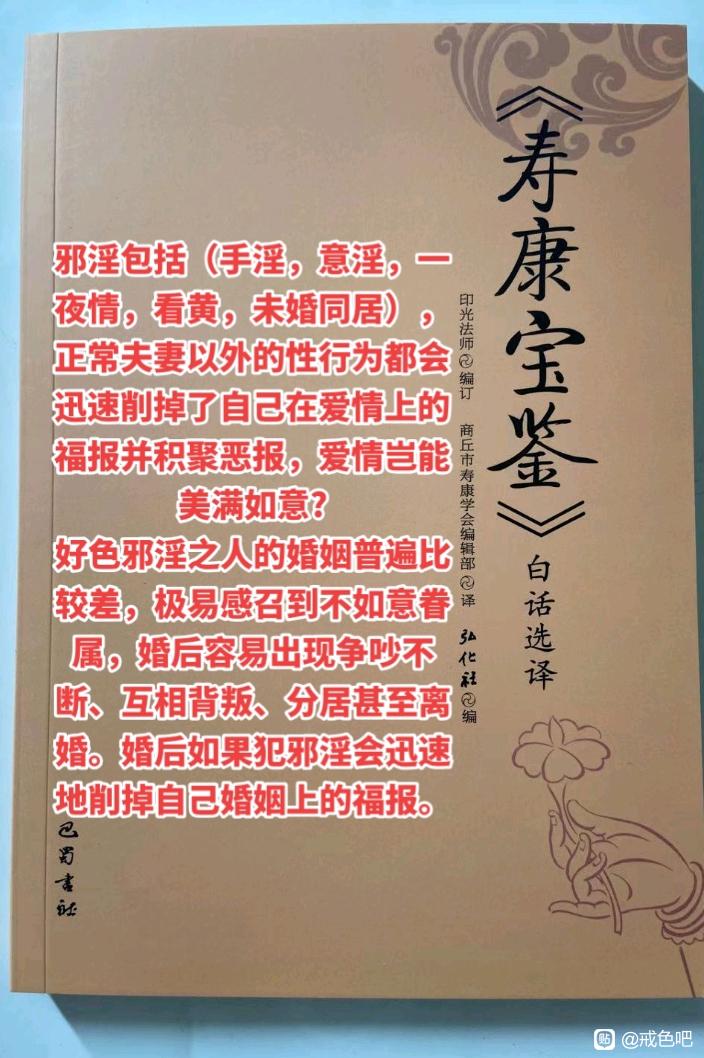 《寿康宝鉴》
白话选译
印光法师 编订
商丘市寿康学会编辑部 译
弘化社 编
邪淫包括（手淫，意淫，一
夜情，看黄，未婚同居），
正常夫妻以外的性行为都会
迅速削掉了自己在爱情上的
福报并积聚恶报，爱情岂能
美满如意?
好色邪淫之人的婚姻普遍比
较差，极易感召到不如意眷
属，婚后容易出现争吵不
断、互相背叛、分居甚至离
婚。婚后如果犯邪淫会迅速
地削掉自己婚姻上的福报。
巴蜀书社
贴 @戒色吧